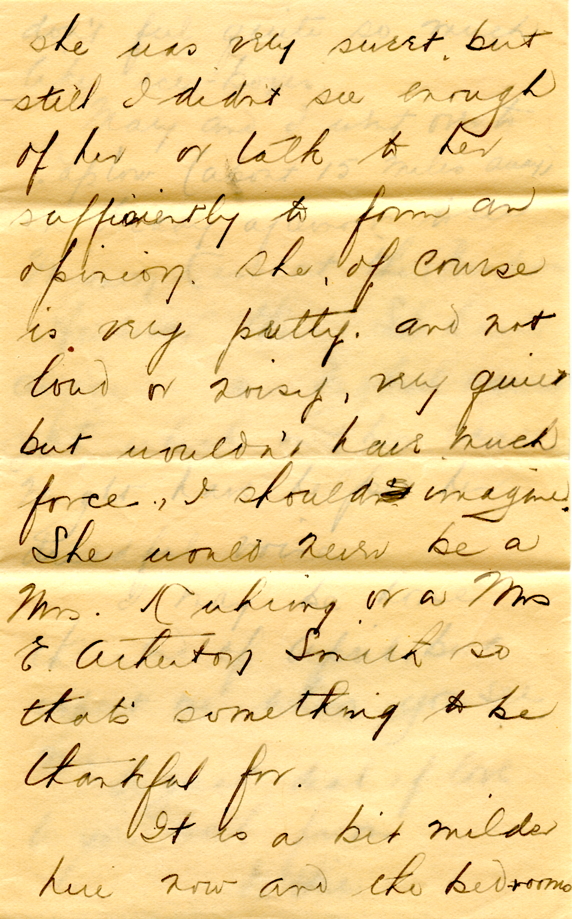 she was very sweet, but
still I didn't see enough
of her or talk to her
sufficiently to form an
opinion. She, of course
is very pretty. and not
loud or noisy, very quiet
but wouldn't have much
force., I should imagine.
She would never be a
Mrs. or a Mrs
E. Atherton Smith so
that's something to be
thankful for.
It is a bit milder
here now and the bedrooms